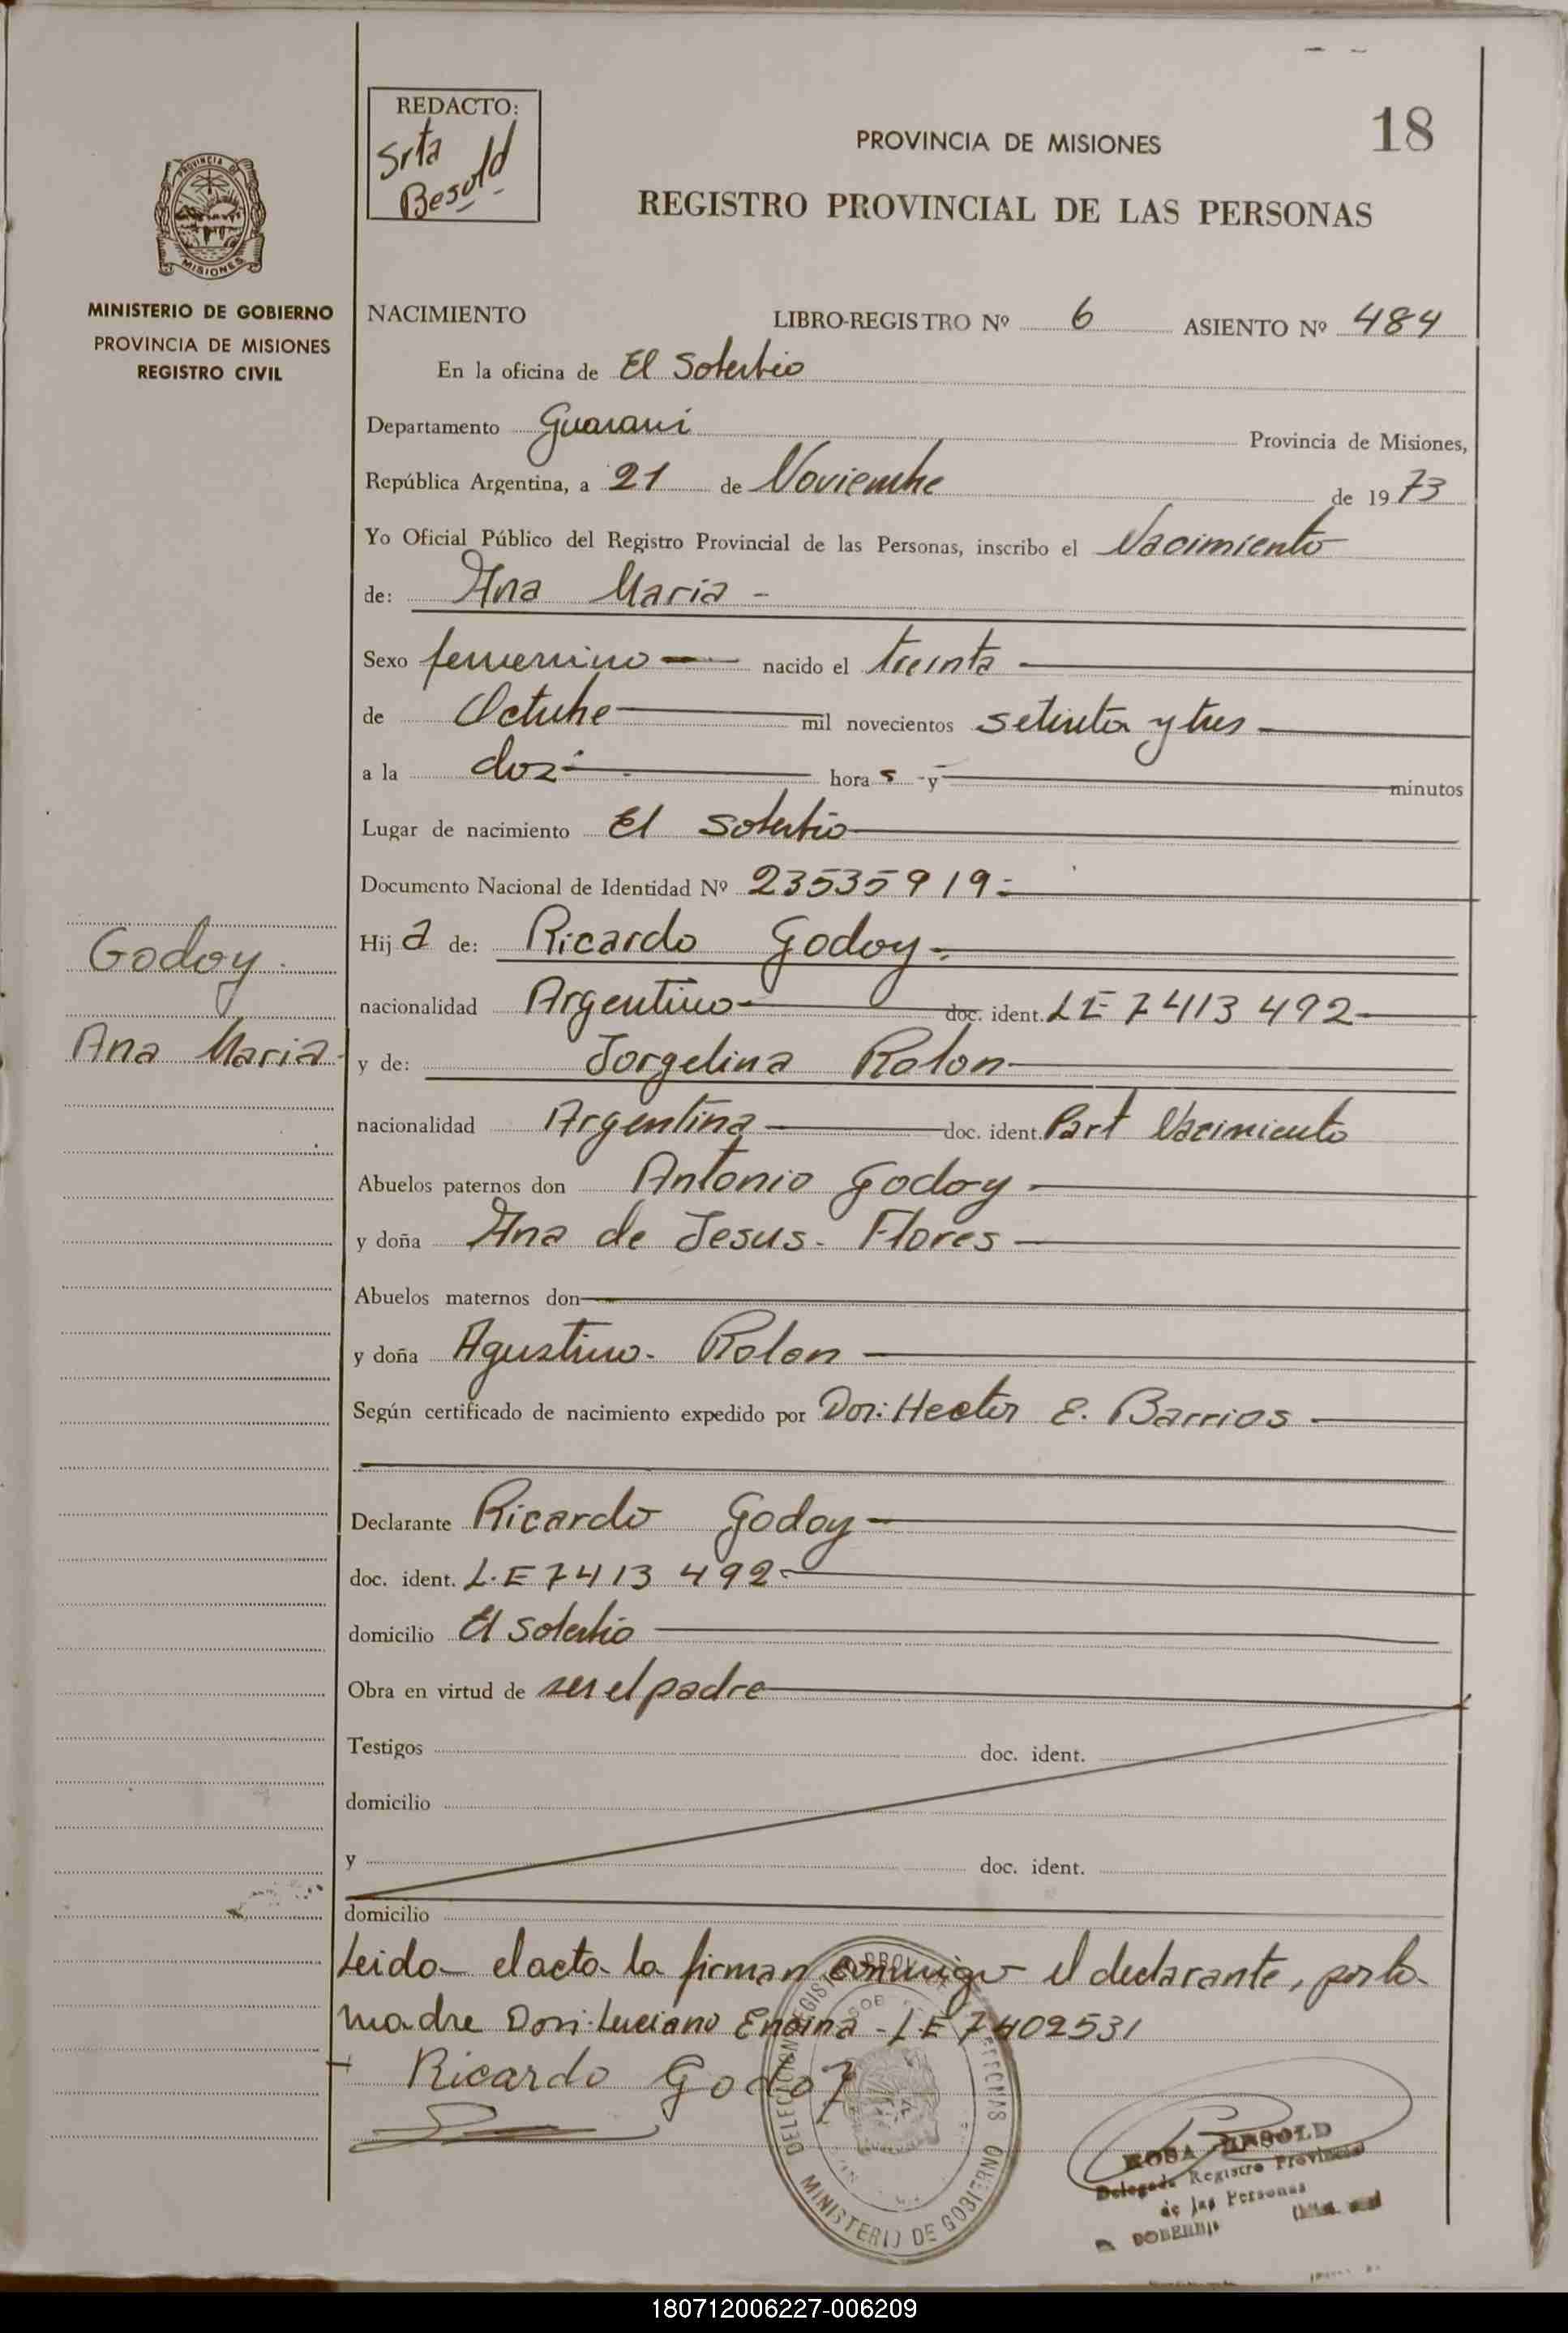 REDACTO:
Srta
Besold
PROVINCIA DE MISIONES
18
REGISTRO PROVINCIAL DE LAS PERSONAS
PROVINCIA DE
MISIONES
MINISTERIO DE GOBIERNO
PROVINCIA DE MISIONES
REGISTRO CIVIL
NACIMIENTO LIBRO-REGISTRO Nº 6 ASIENTO Nº 484
En la oficina de El Soberbio
Departamento Guarani Provincia de Misiones,
República Argentina, a 21 de Noviembre de 1973
Yo Oficial Público del Registro Provincial de las Personas, inscribo el Nacimiento
de: Ana Maria -
Sexo femenino nacido el treinta
de Octubre mil novecientos setenta y tres
a la doz hora s y minutos
Lugar de nacimiento El Soberbio
Documento Nacional de Identidad Nº 23535919
Hija de: Ricardo Godoy
nacionalidad Argentino doc. ident. LE 7413492
y de: Jorgelina Rolon
nacionalidad Argentina doc. ident. Part Nacimiento
Abuelos paternos don Antonio Godoy
y doña Ana de Jesus Flores
Abuelos maternos don
y doña Agustina Rolon
Según certificado de nacimiento expedido por Don: Hector E. Barrios
Declarante Ricardo Godoy
doc. ident. L.E 7413492
domicilio El Soberbio
Obra en virtud de ser el padre
Testigos doc. ident.
domicilio
y doc. ident.
domicilio
Godoy
Ana Maria
Leida el acta la firman conmigo el declarante, por la
madre Don: Luciano Encina - L.E 7402531
Ricardo Godoy
MINISTERIO DE GOBIERNO
ROSA BESOLD
Delegada Registro Provincial
de las Personas
180712006227-006209